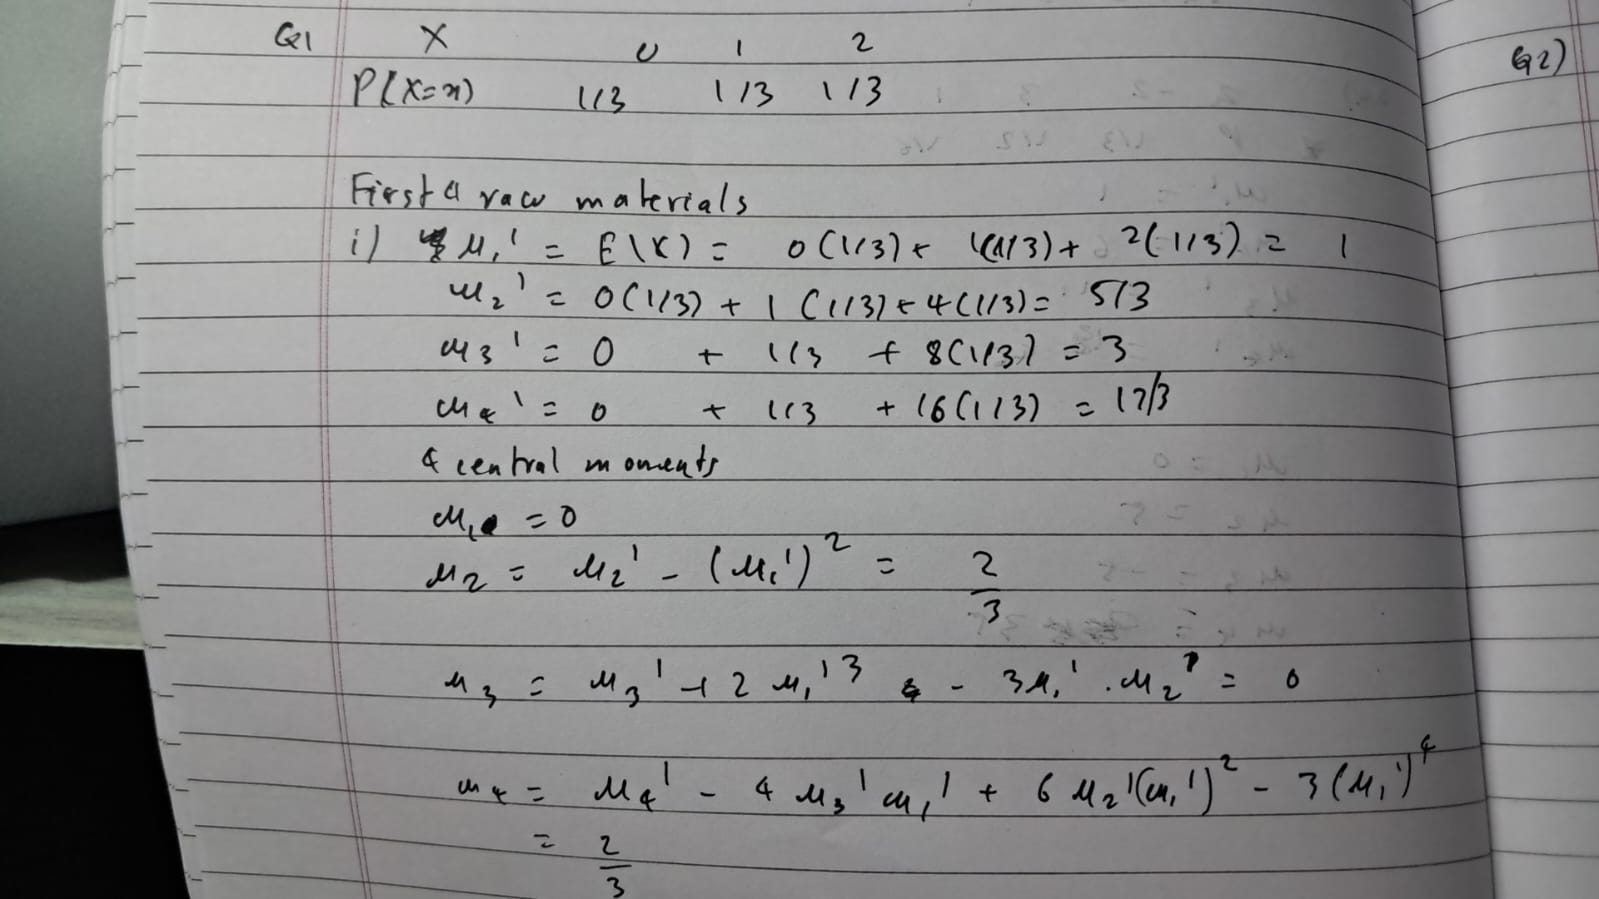 Q1 X 0 1 2
P(X=x) 1/3 1/3 1/3
First 4 raw materials
i) μ₁' = E(X) = 0(1/3) + 1(1/3) + 2(1/3) = 1
μ₂' = 0(1/3) + 1(1/3) + 4(1/3) = 5/3
μ₃' = 0 + 1/3 + 8(1/3) = 3
μ₄' = 0 + 1/3 + 16(1/3) = 17/3
4 central moments
μ₁ = 0
μ₂ = μ₂' - (μ₁')² = 2/3
μ₃ = μ₃' + 2μ₁'³ - 3μ₁'.μ₂' = 0
μ₄ = μ₄' - 4μ₃'μ₁' + 6μ₂'(μ₁')² - 3(μ₁')⁴
= 2/3
Q2)